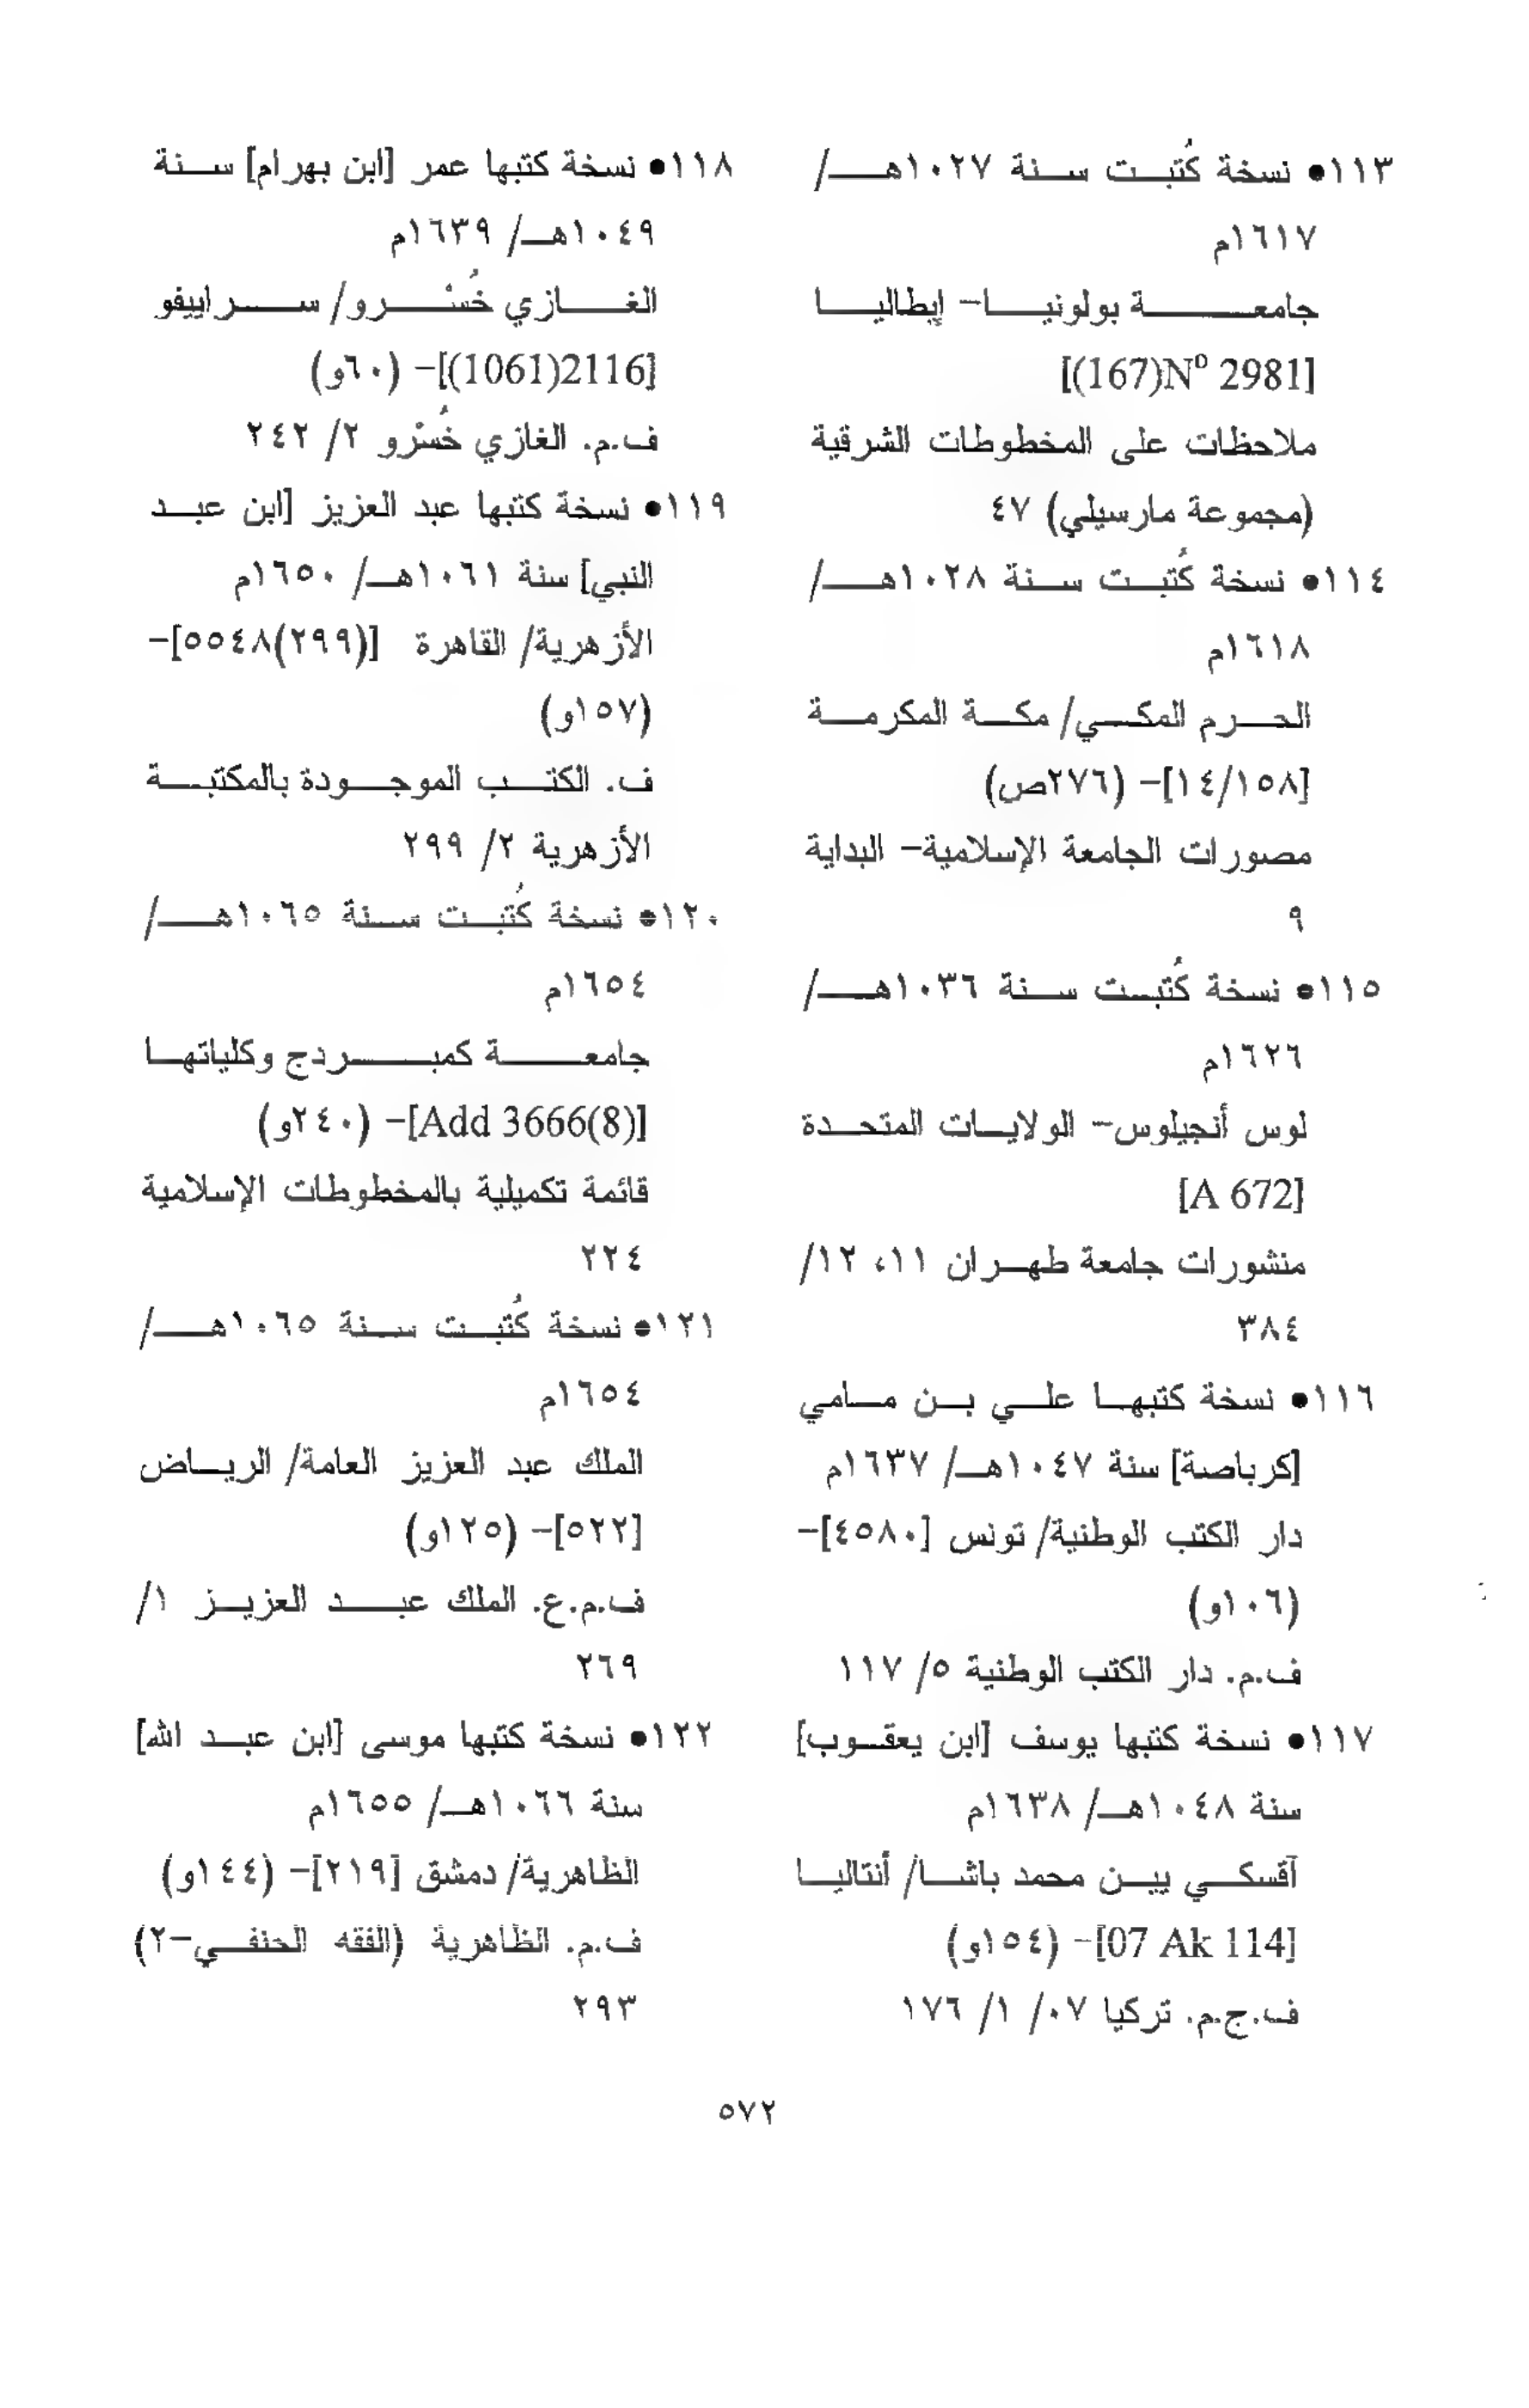 ١١٣● نسخة كُتبت سنة ١٠٢٧هـ/
١٦١٧م
جامعة بولونيا- إيطاليا
[(167)Nº 2981]
ملاحظات على المخطوطات الشرقية
(مجموعة مارسيلي) ٤٧
١١٤● نسخة كُتبت سنة ١٠٢٨هـ/
١٦١٨م
الحرم المكي/ مكة المكرمة
[١٤/١٥٨]- (٢٧٦ص)
مصورات الجامعة الإسلامية- البداية
٩
١١٥● نسخة كُتبت سنة ١٠٣٦هـ/
١٦٢٦م
لوس أنجيلوس- الولايات المتحدة
[A 672]
منشورات جامعة طهران ١١، ١٢/
٣٨٤
١١٦● نسخة كتبها علي بن مامي
[كرباصة] سنة ١٠٤٧هـ/ ١٦٣٧م
دار الكتب الوطنية/ تونس [٤٥٨٠]-
(١٠٦و)
ف.م. دار الكتب الوطنية ٥/ ١١٧
١١٧● نسخة كتبها يوسف [ابن يعقوب]
سنة ١٠٤٨هـ/ ١٦٣٨م
آقسكي يين محمد باشا/ أنتاليا
[07 Ak 114]- (١٥٤و)
ف.ج.م. تركيا ٠٧/ ١/ ١٧٦
١١٨● نسخة كتبها عمر [ابن بهرام] سنة
١٠٤٩هـ/ ١٦٣٩م
الغازي خُسْرو/ سراييفو
[(1061)2116]- (٦٠و)
ف.م. الغازي خُسْرو ٢/ ٢٤٢
١١٩● نسخة كتبها عبد العزيز [ابن عبد
النبي] سنة ١٠٦١هـ/ ١٦٥٠م
الأزهرية/ القاهرة [(٢٩٩)٥٥٤٨]-
(١٥٧و)
ف. الكتب الموجودة بالمكتبة
الأزهرية ٢/ ٢٩٩
١٢٠● نسخة كُتبت سنة ١٠٦٥هـ/
١٦٥٤م
جامعة كمبردج وكلياتها
[Add 3666(8)]- (٢٤٠و)
قائمة تكميلية بالمخطوطات الإسلامية
٢٢٤
١٢١● نسخة كُتبت سنة ١٠٦٥هـ/
١٦٥٤م
الملك عبد العزيز العامة/ الرياض
[٥٢٢]- (١٢٥و)
ف.م.ع. الملك عبد العزيز ١/
٢٦٩
١٢٢● نسخة كتبها موسى [ابن عبد الله]
سنة ١٠٦٦هـ/ ١٦٥٥م
الظاهرية/ دمشق [٢١٩]- (١٤٤و)
ف.م. الظاهرية (الفقه الحنفي-٢)
٢٩٣
٥٧٢